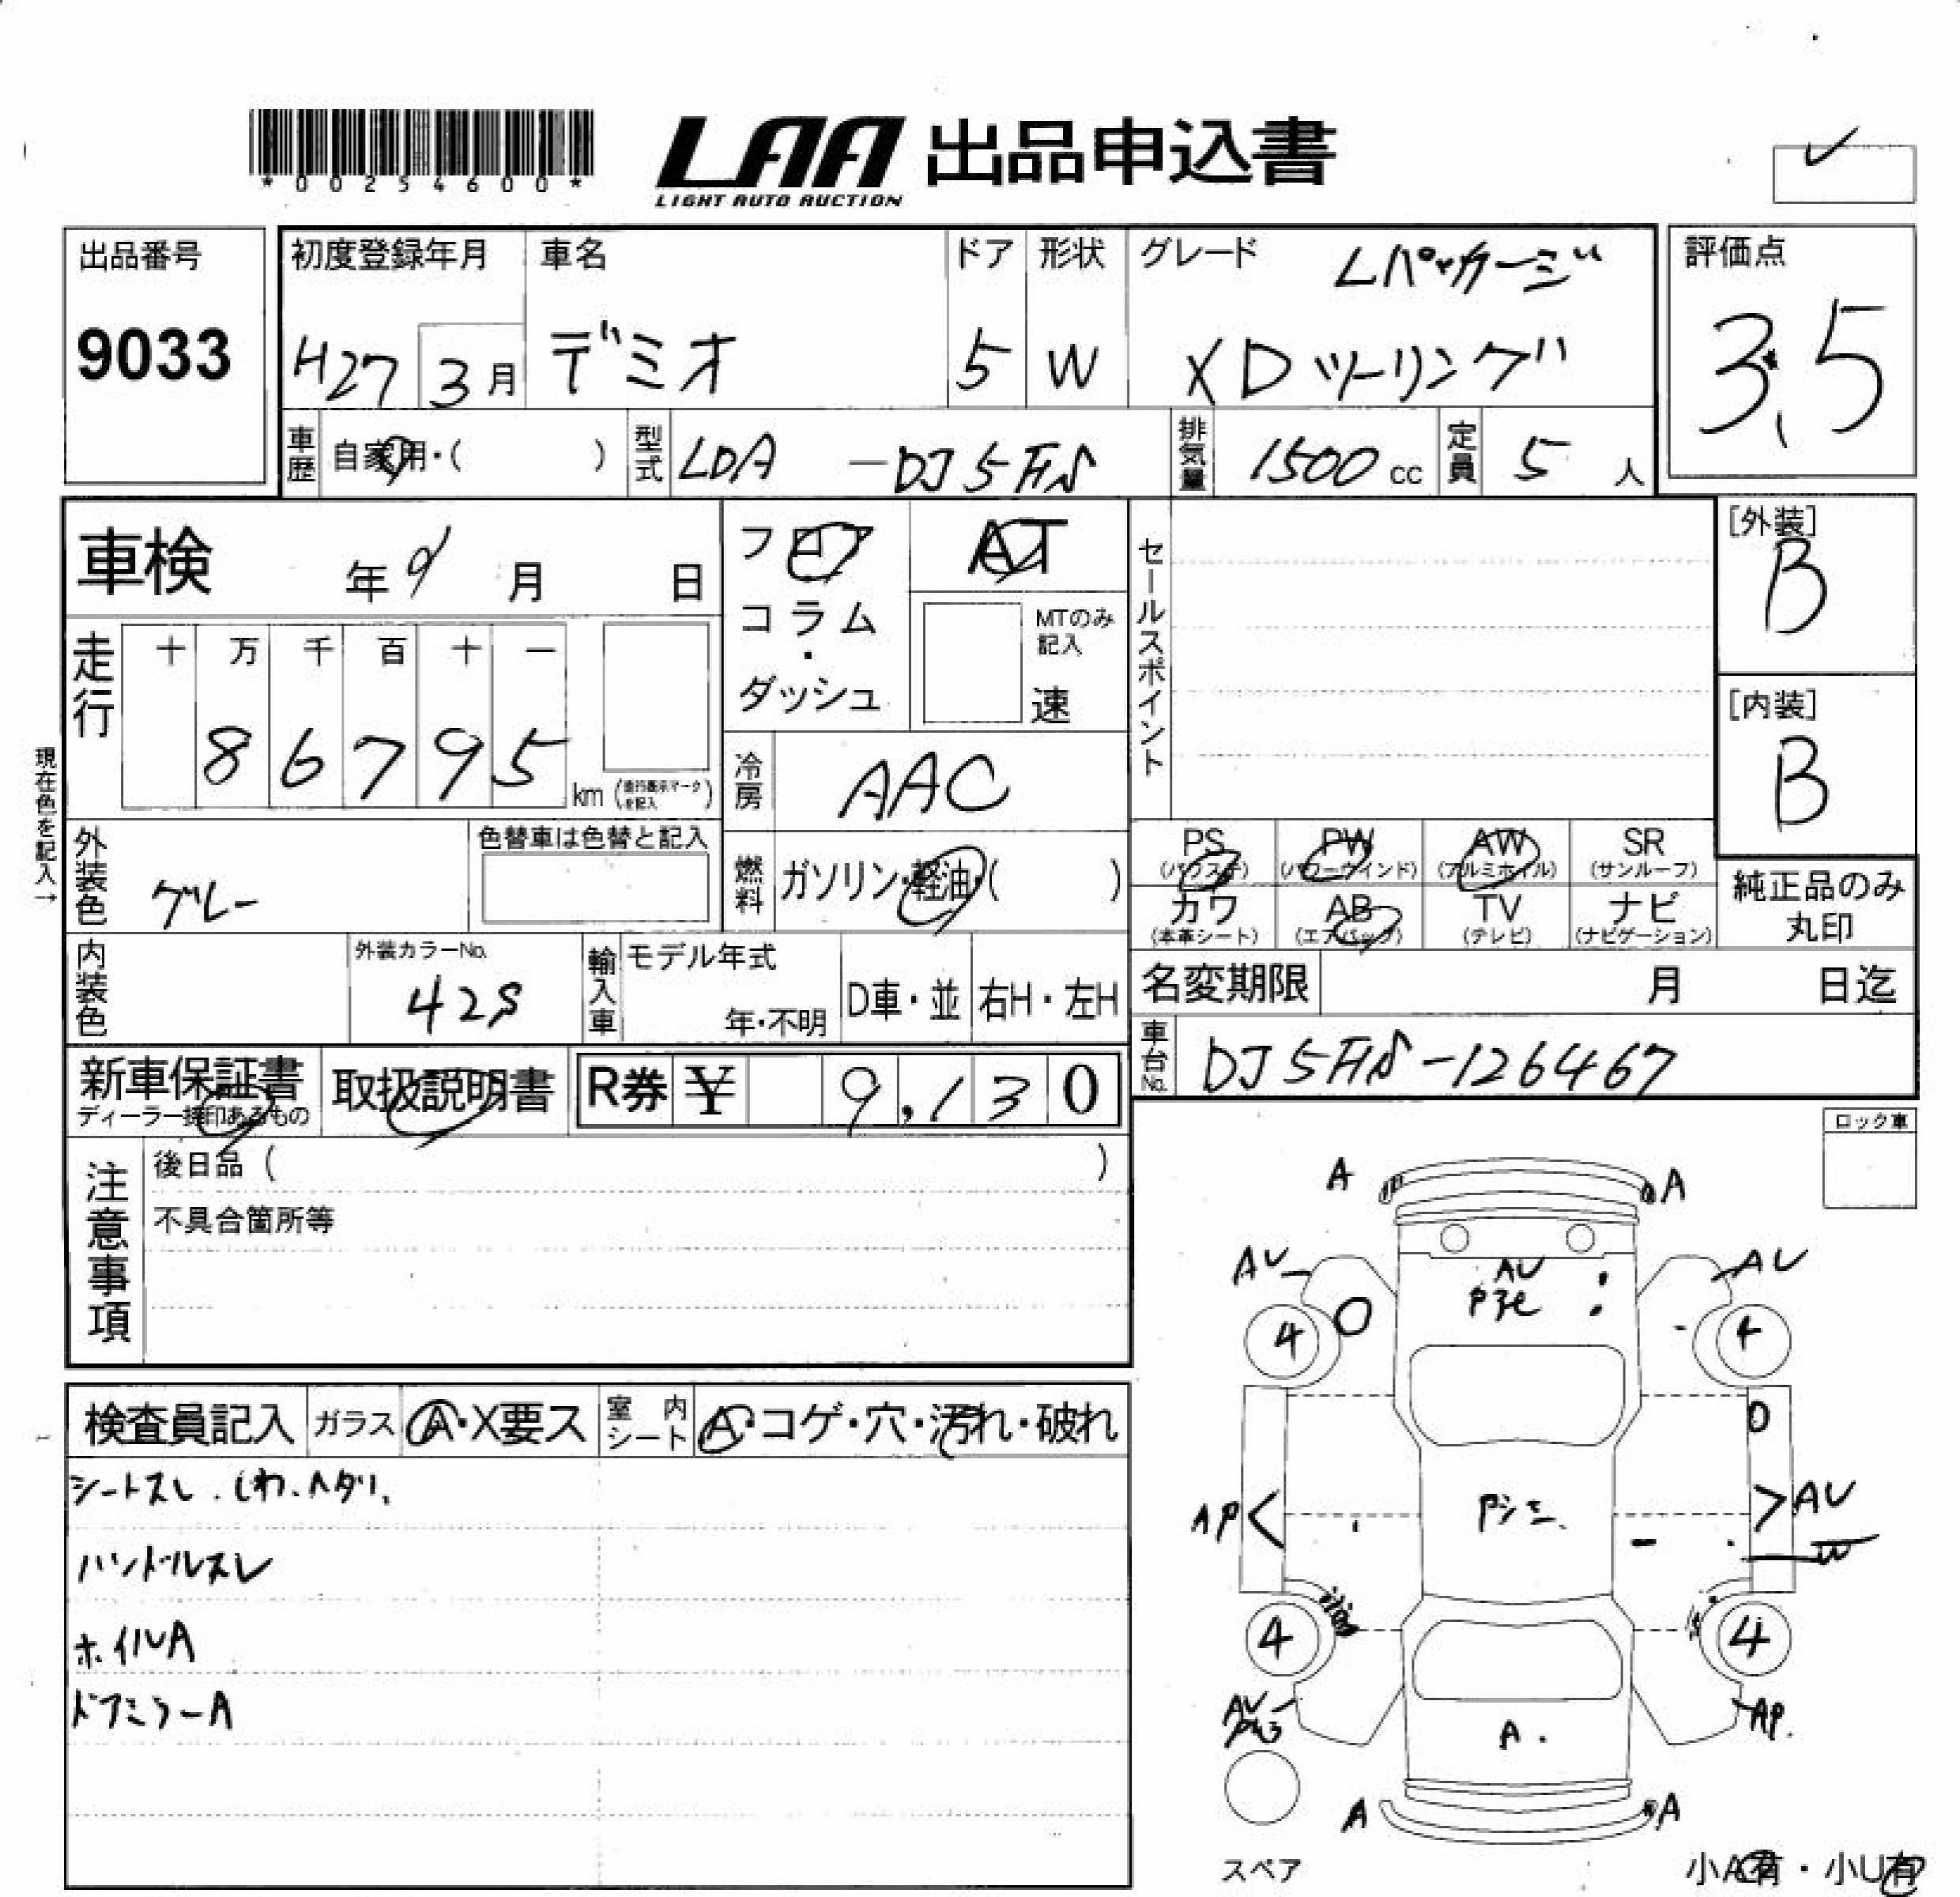 *00254600*
LAA 出品申込書
LIGHT AUTO AUCTION
出品番号
9033
初度登録年月
H27 3月
車名
デミオ
ドア
5
形状
W
グレード
Lパッケージ
XDツーリング
評価点
3.5
車歴 自家用・( )
型式 LDA -DJ5FS
排気量 1500 cc
定員 5 人
車検 年 月 日
走行
十 万 千 百 十 一
8 6 7 9 5 km (走行表示マークを記入)
現在色を記入→
フロア
コラム
・
ダッシュ
AT
MTのみ記入
速
冷房 AAC
セールスポイント
[外装]
B
[内装]
B
外装色 グレー
色替車は色替と記入
燃料 ガソリン・軽油・( )
PS (パワステ)
PW (パワーウインド)
AW (アルミホイル)
SR (サンルーフ)
カワ (本革シート)
AB (エアバック)
TV (テレビ)
ナビ (ナビゲーション)
純正品のみ丸印
内装色
外装カラーNo.
42S
輸入車
モデル年式
年・不明
D車・並
右H・左H
名変期限 月 日迄
車台No. DJ5FS-126467
新車保証書
ディーラー捺印あるもの
取扱説明書
R券 ¥ 9,130
注意事項
後日品 ( )
不具合箇所等
ロック車
検査員記入
ガラス A・X要ス
室内シート A・コゲ・穴・汚れ・破れ
シートスレ.しわ.ヘタリ.
ハンドルスレ
ホイルA
ドアミラーA
A A
AU AU
AU
4 4
AP AU
W
4 4
AU AP.
A.
A A
スペア
小A有・小U有